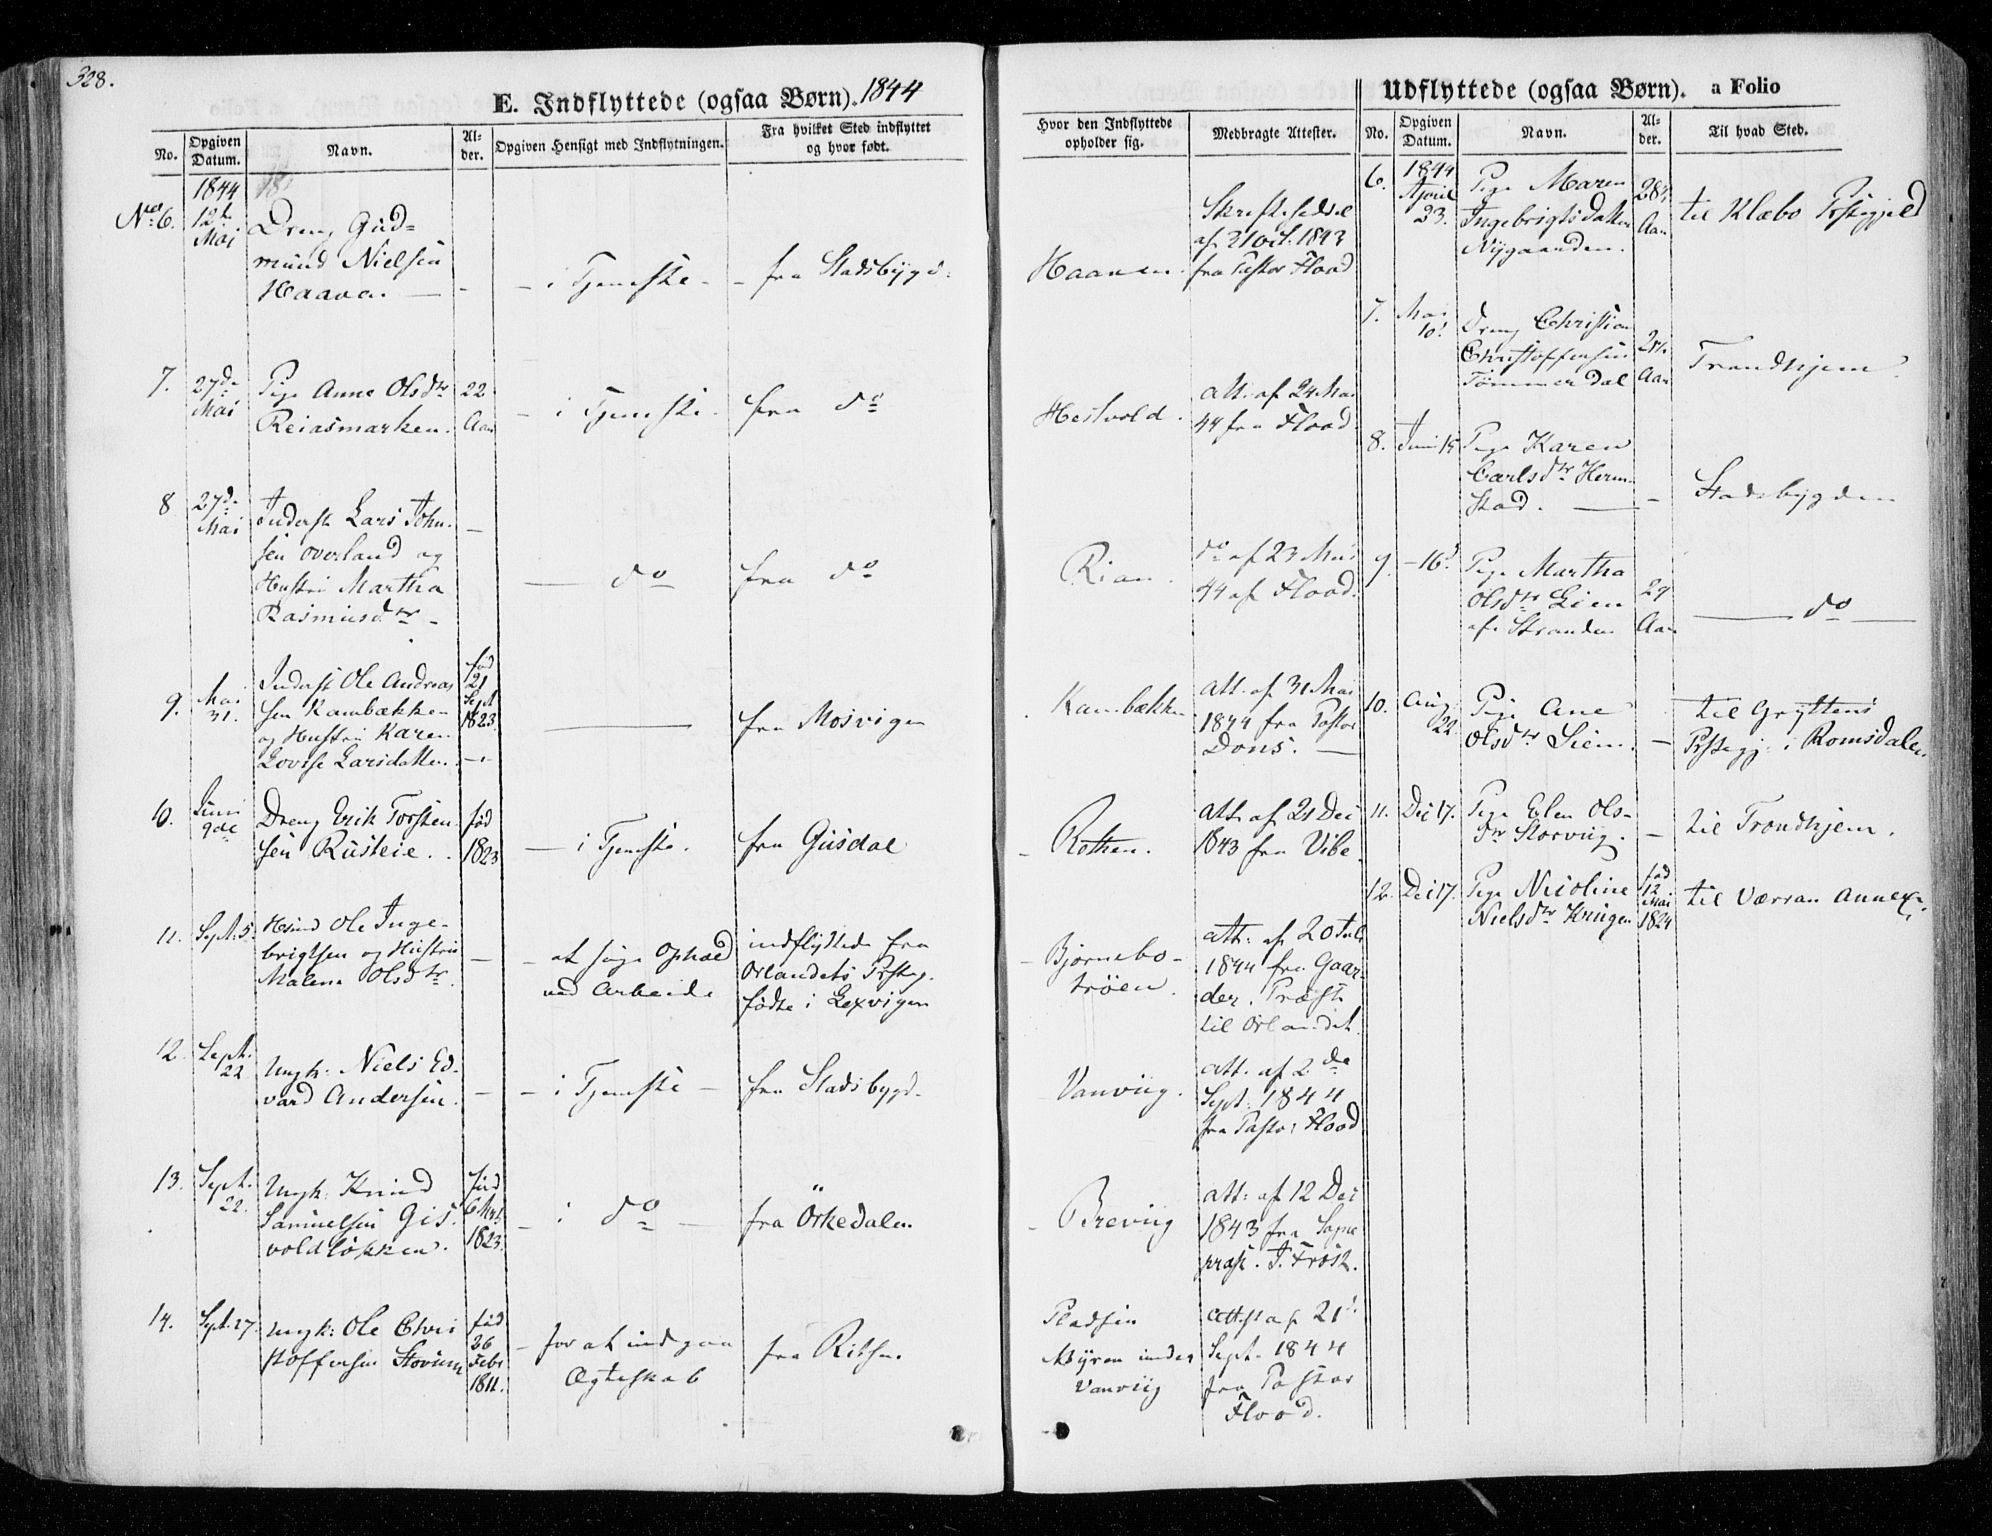 328.
E. Indflyttede (ogsaa Børn). 1844
No.
Opgiven Datum.
Navn.
Alder.
Opgiven Hensigt med Indflytningen.
Fra hvilket Sted indflyttet
og hvor født.
1844
No 6.
12te
Mai
Dreng Gud-
mund Nielsen
Haava.
- i Tjeneste -
- fra Stadsbygd.
7.
27de
Mai
Pige Anne Olsdtr
Reiasmarken.
22
Aar
- i Tjeneste.
fra do
8
27d.
Mai
Inderst Lars John-
sen Overland og
Hustru Martha
Rasmusdtr -
do
fra do
9.
Mai
31.
Inderst Ole Andreas
sen Kambækken
og Hustru Karen
Lovise Larsdatter.
fød
21
Sept
1823
fra Mosvigen
10.
Juni
9de
Dreng Erik Torsten-
sen Rusteie.
fød
1823
- i Tjeneste.
fra Gusdal
11.
Sept. 5.
Husmd Ole Inge-
brigtsen og Hustru
Malena Olsdtr
- at søge Ophold
ved Arbeide
indflyttede fra
Ørlandets Prstegj.
fødte i Lexvigen
12.
Sept.
22
Ungk: Niels Ed-
vard Andersen.
- i Tjeneste -
fra Stadsbygd.
13.
Sept.
22.
Ungk: Knud
Samuelsen Gis-
voldløkken.
fød
6 Mrts
1823.
- i do -
fra Örkedalen
14.
Sept. 27.
Ungk: Ole Chri
stoffersen Stovium
fød
26
Febr
1811.
- for at indgaa
Ægteskab
fra Ritsen.
Hvor den Indflyttede
opholder sig.
Medbragte Attester.
Haaven.
Skriftesedel
af 21 Oct. 1843
fra Pastor Flood
Hestvold.
Att. af 24 Mai
44 fra Flood
Rian.
do af 23 Mai
44 af Flood.
Kambækken
Att. af 31 Mai
1844 fra Pastor
Dons.
- Rothen.
Att. af 21 Dec
1843 fra Vibe.
- Bjørnebo-
trøen.
Att: af 20 Juli
1844 fra Gaar-
der. Præst
til Ørlandet.
Vanviig.
Att. af 2de
Sept: 1844
fra Pastor Flood
- Breviig
Att: af 12 Dec
1843 fra Sogne
præst. J. Frøst.
Pladsen
Myren under
Vanviig
Attest af 21.
Sept. 1844
fra Pastor
Flood.
Udflyttede (ogsaa Børn). a Folio
No.
Opgiven Datum.
Navn.
Alder.
Til hvad Sted.
6.
1844
April
23.
Pige Maren
Ingebrigtsdatter
Nygaarden.
28
Aar
til Klæbo Prstegjeld
7.
Mai
10.
Dreng Christian
Christoffersen
Tømmerdal
Aar
Trondhjem.
8.
Juni 15
Pige Karen
Carlsdtr Herm-
stad.
Stadsbygden
9.
-16.
Pige Martha
Olsdtr Lien
af Stranden
29
Aar
do
10.
Aug.
22
Pige Ane
Olsdtr Siem.
til Gryttens
Prstegj: i Romsdalen.
11.
Dec 17.
Pige Elen Ols-
dtr Storviig.
til Trondhjem.
12.
Dec 17.
Pige Nicoline
Nielsdtr Krügen
fød
12
Mai
1824
til Værran Annex.